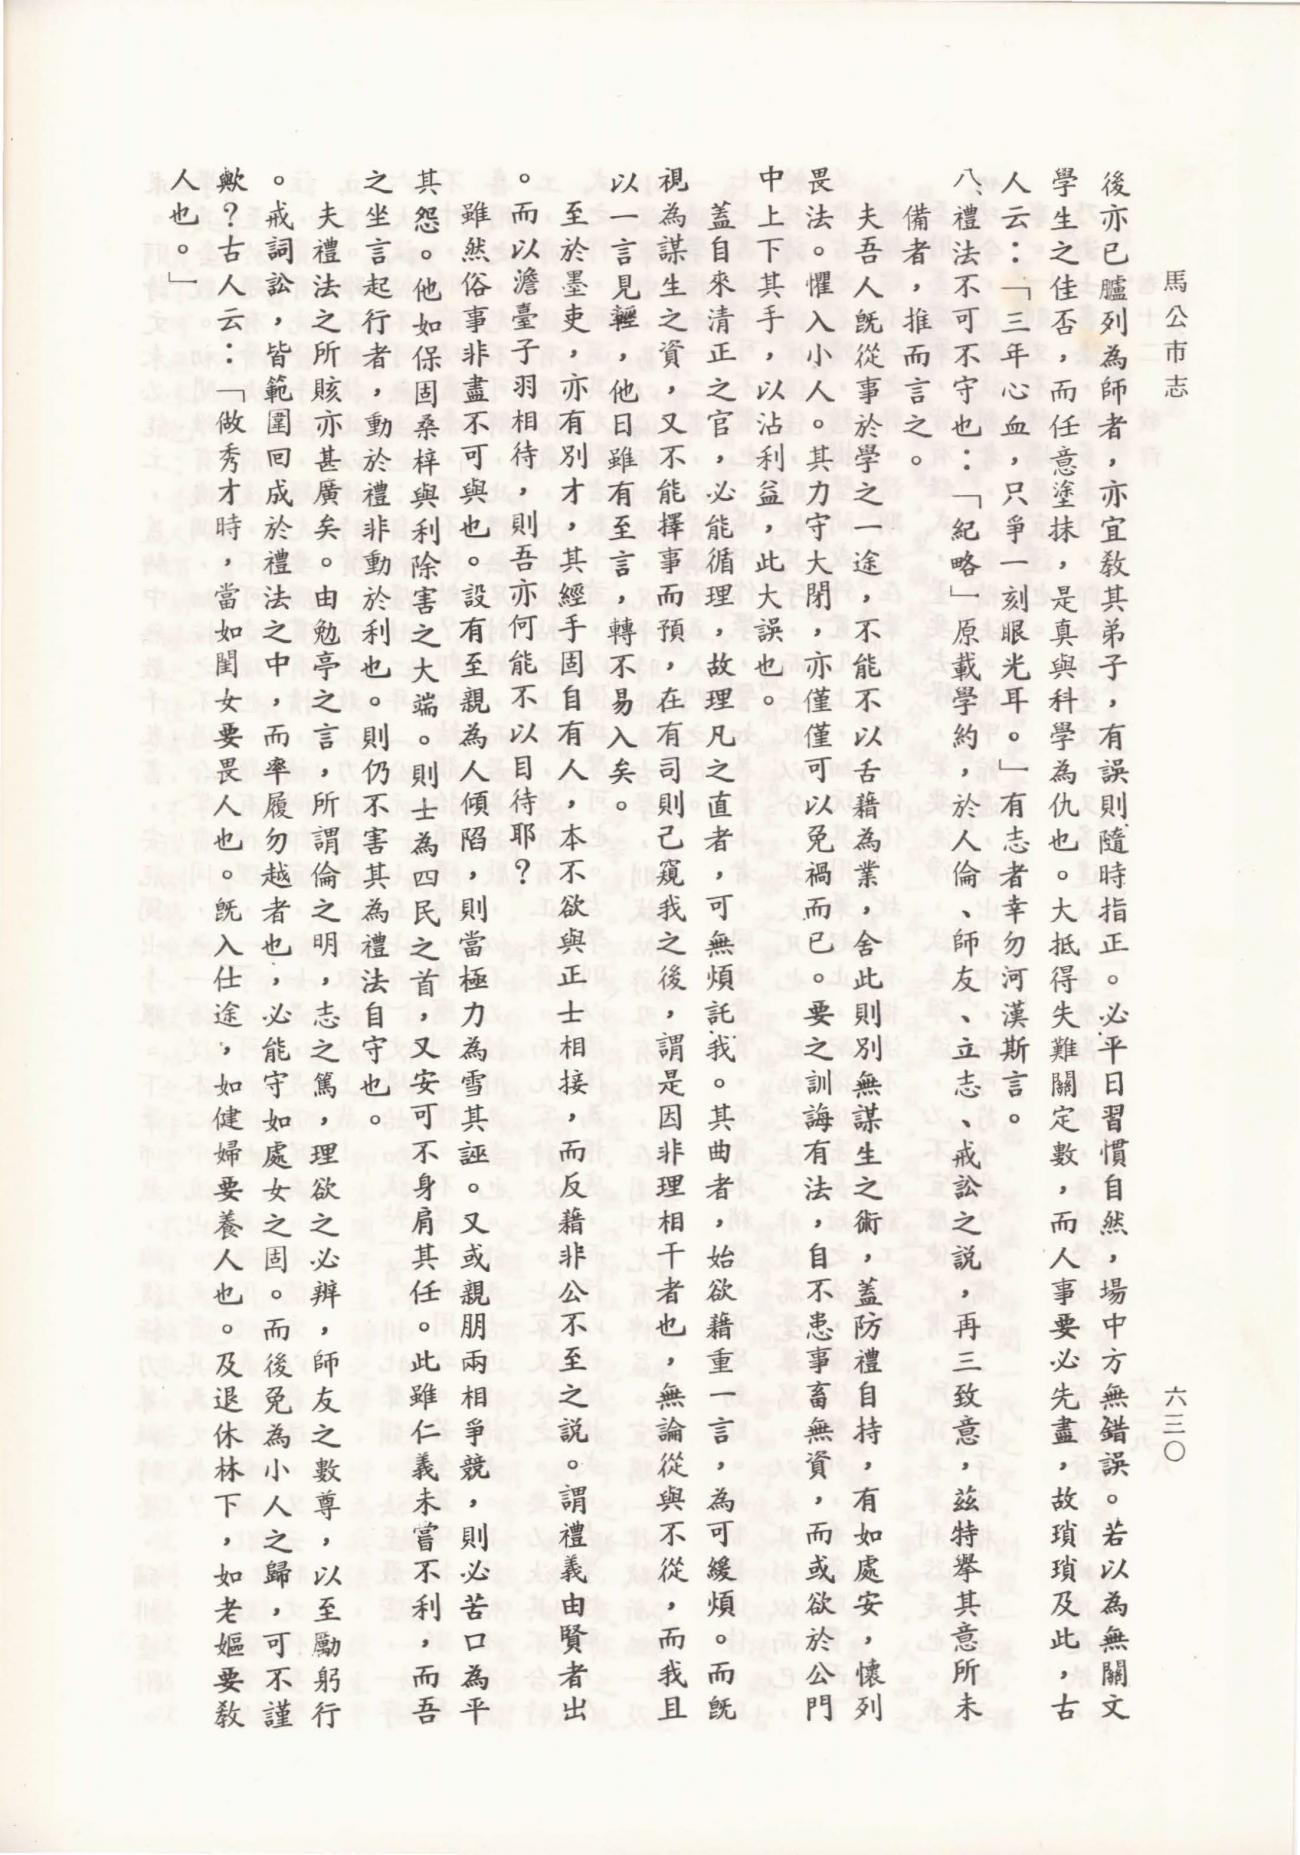 馬公市志
六三〇
後亦已臚列為師者，亦宜教其弟子，有誤則隨時指正。必平日習慣自然，場中方無錯誤。若以為無關文
學生之佳否，而任意塗抹，是真與科學為仇也。大抵得失難關定數，而人事要必先盡，故瑣瑣及此，古
人云：「三年心血，只爭一刻眼光耳。」有志者幸勿河漢斯言。
八、禮法不可不守也：「紀略」原載學約，於人倫、師友、立志、戒訟之說，再三致意，茲特舉其意所未
備者，推而言之。
夫吾人既從事於學之一途，不能不以古籍為業，舍此則別無謀生之術，蓋防禮自持，有如處安，懷列
畏法。懼入小人。其力守大閉，亦僅僅可以免禍而已。要之訓誨有法，自不患事畜無資，而或欲於公門
中上下其手，以沾利益，此大誤也。
蓋自來清正之官，必能循理，故理凡之直者，可無煩託我。其曲者，始欲藉重一言，為可緩煩。而既
視為謀生之資，又不能擇事而預，在有司則已窺我之後，謂是因非理相干者也，無論從與不從，而我且
以一言見輕，他日雖有至言，轉不易入矣。
至於墨吏，亦有別才，其經手固自有人，本不欲與正士相接，而反藉非公不至之說。謂禮義由賢者出
。而以澹臺子羽相待，則吾亦何能不以目待耶？
雖然俗事非盡不可與也。設有至親為人傾陷，則當極力為雪其誣。又或親朋兩相爭競，則必苦口為平
其怨。他如保固桑梓與利除害之大端。則士為四民之首，又安可不身肩其任。此雖仁義未嘗不利，而吾
之坐言起行者，動於禮非動於利也。則仍不害其為禮法自守也。
夫禮法之所賅亦甚廣矣。由勉亭之言，所謂倫之明，志之篤，理欲之必辨，師友之數尊，以至勵躬行
。戒詞訟，皆範圍回成於禮法之中，而率履勿越者也，必能守如處女之固。而後免為小人之歸，可不謹
歟？古人云：「做秀才時，當如閨女要畏人也。既入仕途，如健婦要養人也。及退休林下，如老嫗要教
人也。」